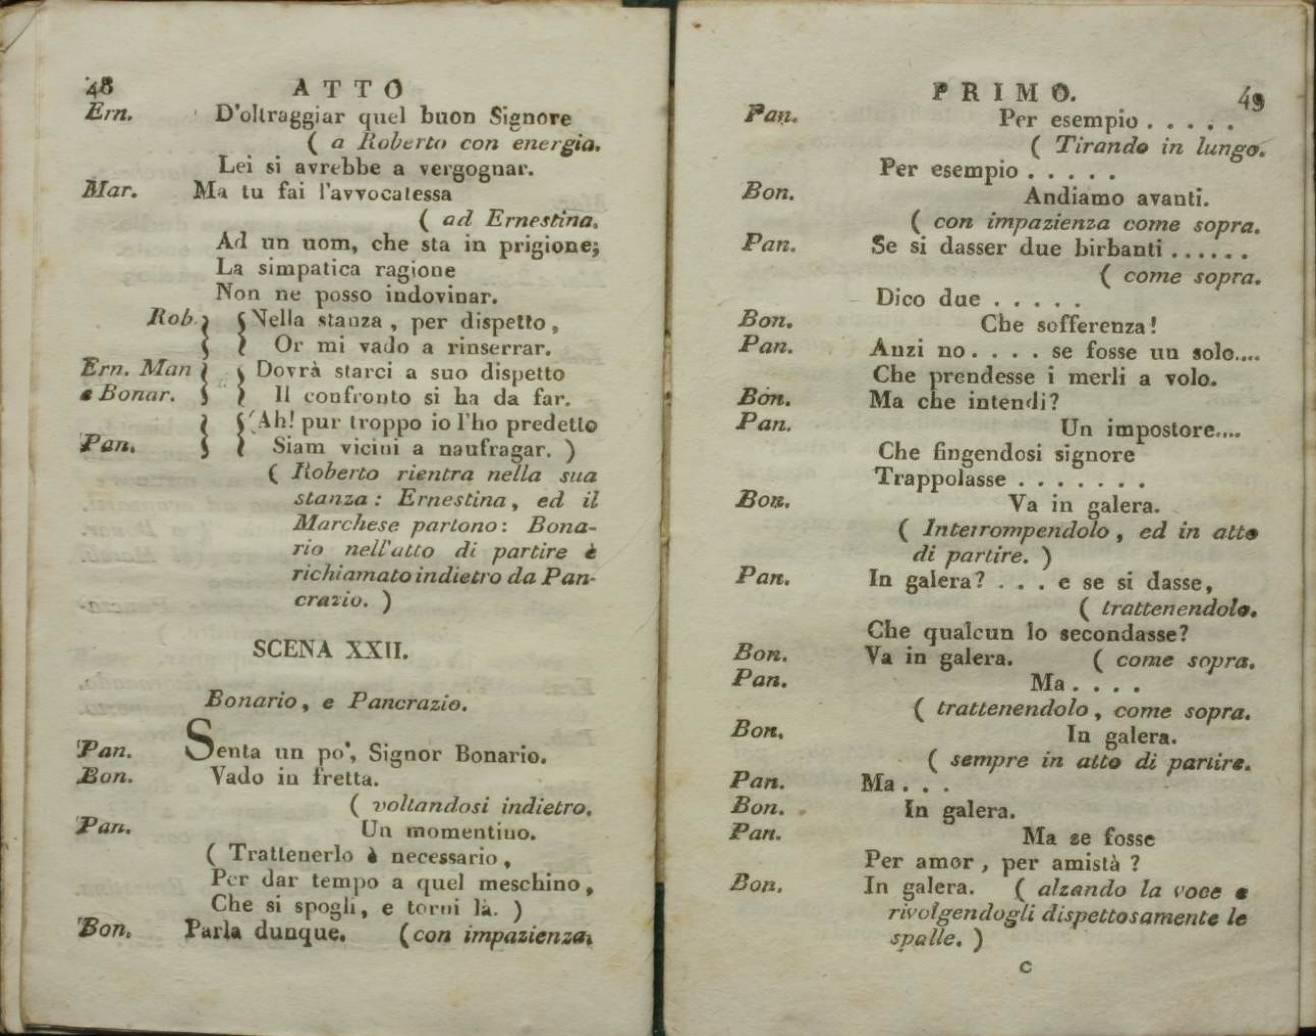 48 ATTO
Ern. D'oltraggiar quel buon Signore
( a Roberto con energia.
Lei si avrebbe a vergognar.
Mar. Ma tu fai l'avvocatessa
( ad Ernestina.
Ad un uom, che sta in prigione;
La simpatica ragione
Non ne posso indovinar.
Rob. Nella stanza, per dispetto,
Or mi vado a rinserrar.
Ern. Man Dovrà starci a suo dispetto
e Bonar. Il confronto si ha da far.
(Ah! pur troppo io l'ho predetto
Pan. Siam vicini a naufragar. )
( Roberto rientra nella sua
stanza: Ernestina, ed il
Marchese partono: Bona-
rio nell'atto di partire è
richiamato indietro da Pan-
crazio. )
SCENA XXII.
Bonario, e Pancrazio.
Pan. Senta un po', Signor Bonario.
Bon. Vado in fretta.
( voltandosi indietro.
Pan. Un momentino.
( Trattenerlo è necessario,
Per dar tempo a quel meschino,
Che si spogli, e torni là. )
Bon. Parla dunque. (con impazienza.
PRIMO. 49
Pan. Per esempio . . . . .
( Tirando in lungo.
Per esempio . . . . .
Bon. Andiamo avanti.
( con impazienza come sopra.
Pan. Se si dasser due birbanti ......
( come sopra.
Dico due . . . . .
Bon. Che sofferenza!
Pan. Anzi no. . . . se fosse un solo....
Che prendesse i merli a volo.
Bon. Ma che intendi?
Pan. Un impostore....
Che fingendosi signore
Trappolasse . . . . . . .
Bon. Va in galera.
( Interrompendolo, ed in atto
di partire. )
Pan. In galera? . . . e se si dasse,
( trattenendolo.
Che qualcun lo secondasse?
Bon. Va in galera. ( come sopra.
Pan. Ma . . . .
( trattenendolo, come sopra.
Bon. In galera.
( sempre in atto di partire.
Pan. Ma . . .
Bon. In galera.
Pan. Ma se fosse
Per amor, per amistà ?
Bon. In galera. ( alzando la voce e
rivolgendogli dispettosamente le
spalle. )
C